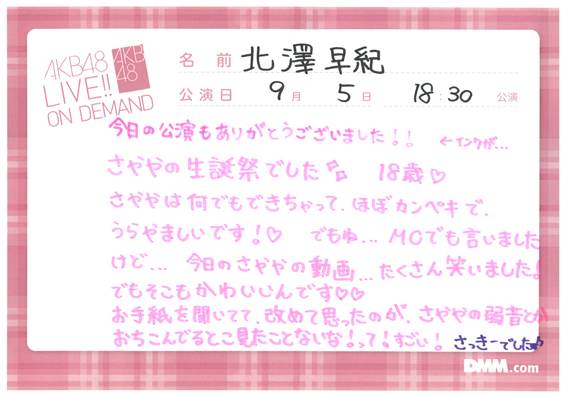 AKB48
LIVE!!
ON DEMAND
AKB
48
名前 北澤早紀
公演日 9月 5日 18:30 公演
今日の公演もありがとうございました!! ←インクが...
さややの生誕祭でした 18歳♡
さややは何でもできちゃって、ほぼカンペキで、
うらやましいです!♡ でもね... MCでも言いました
けど... 今日のさややの動画...たくさん笑いました!
でもそこもかわいいんです♡♡
お手紙を聞いてて、改めて思ったのが、さややの弱音とか
おちこんでるとこ見たことないな!って!すごい! さっきーでした♪
DMM.com